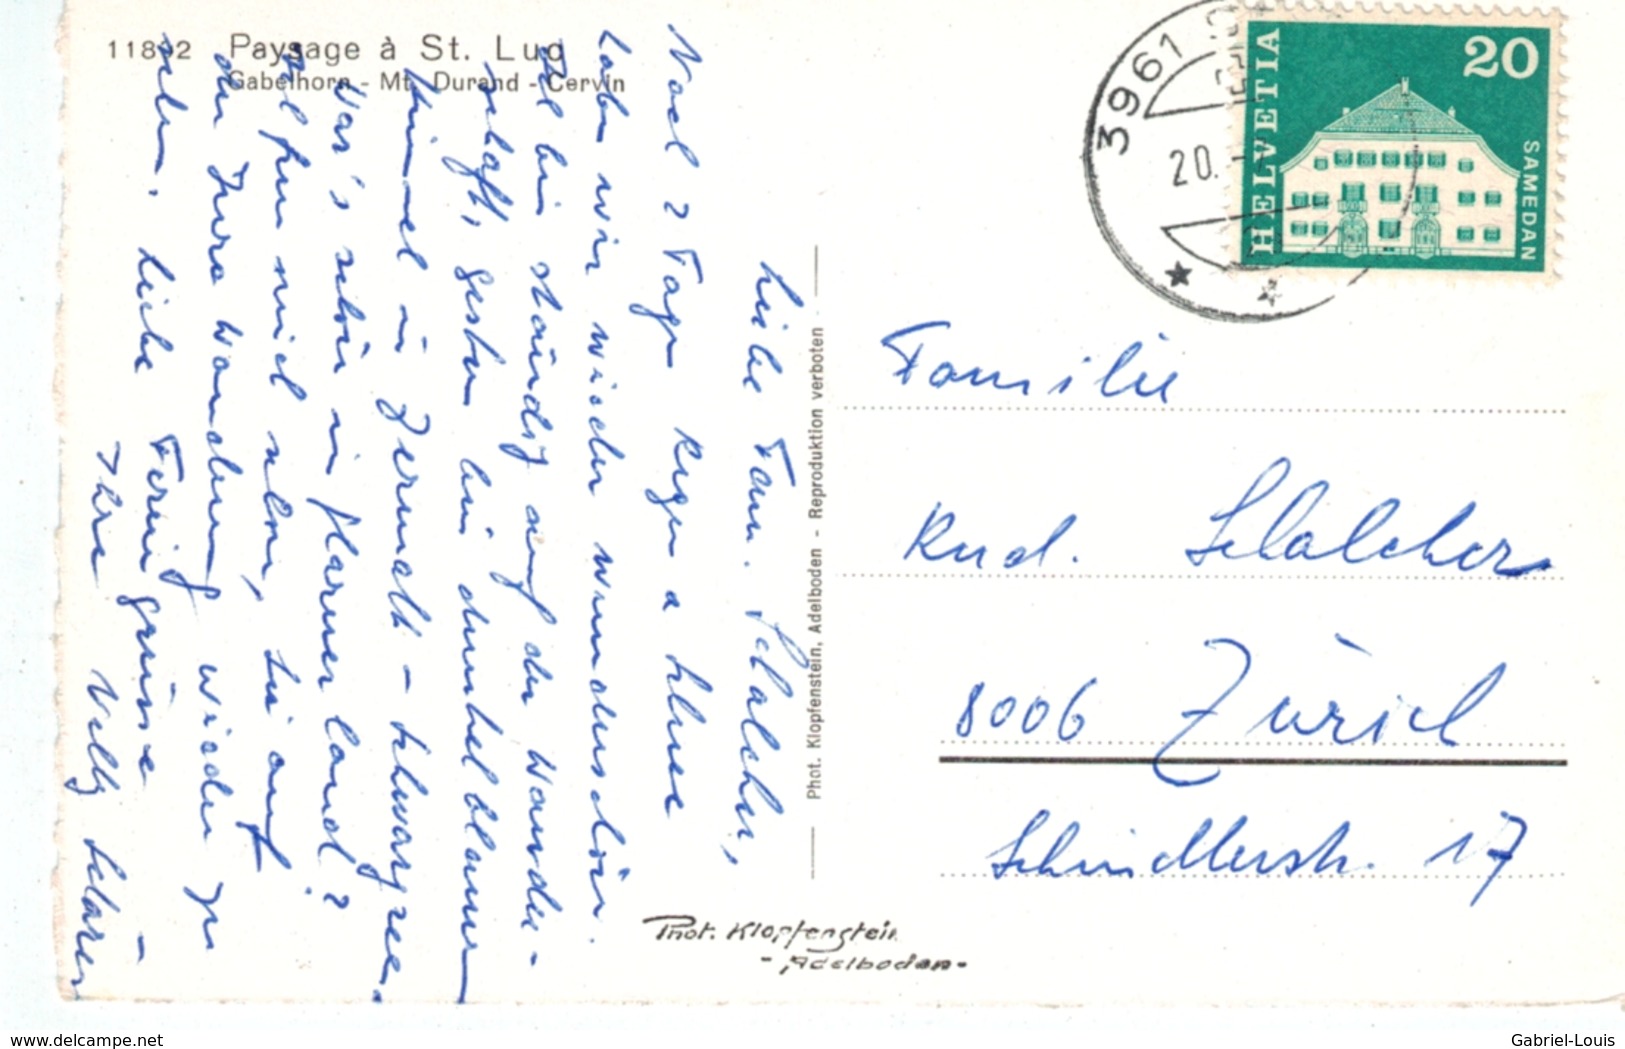 11892 Paysage à St. Luc
Gabelhorn - Mt. Durand - Cervin
Liebe Fam. Schalcher,
Nach 2 Tagen Regen & Schnee
haben wir wieder wunderschön.
bin ständig auf der Wander-
schaft, gestern bei dunkelblauem
Himmel in Zermatt - Schwarzsee.
War's schön im Glarnerland?
Ich freu mich schon, Sie auf
der Jura Wanderung wieder zu
sehen. Liebe Feriengrüsse -
Ihre Nelly Schärer
Phot. Klopfenstein, Adelboden - Reproduktion verboten
Phot. Klopfenstein
- Adelboden -
3961
20.
HELVETIA
20
SAMEDAN
Familie
Rud. Schalcher
8006 Zürich
Schindlerstr. 17
delcampe.net
Gabriel-Louis